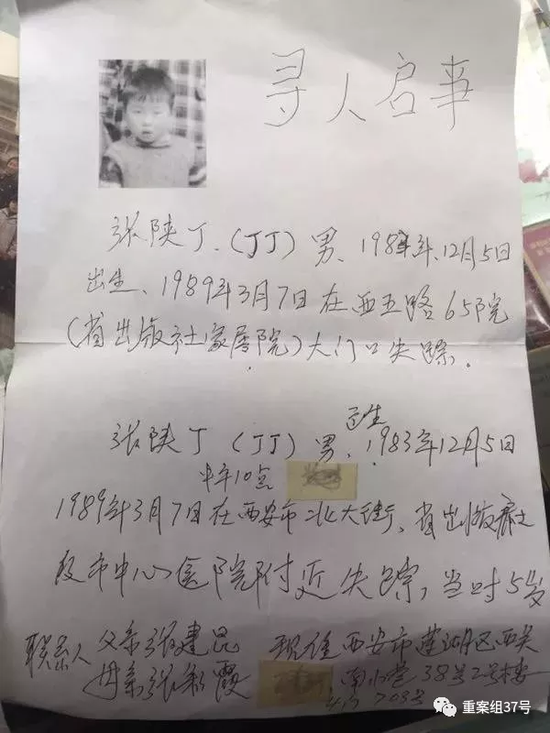 寻人启事
张陕丁、(丁丁) 男、198 年12月5日
出生、1989年3月7日在西五路65院
(省出版社家属院)大门口失踪.
出生
张陕丁 (丁丁) 男、1983年12月5日
中午10点
1989年3月7日在西安市北大街、省出版社
及市中心医院附近失踪,当时5岁
联系人 父亲张建昆 现住西安市莲湖区西关
母亲张彩霞 南小巷38号2号楼
重案组37号